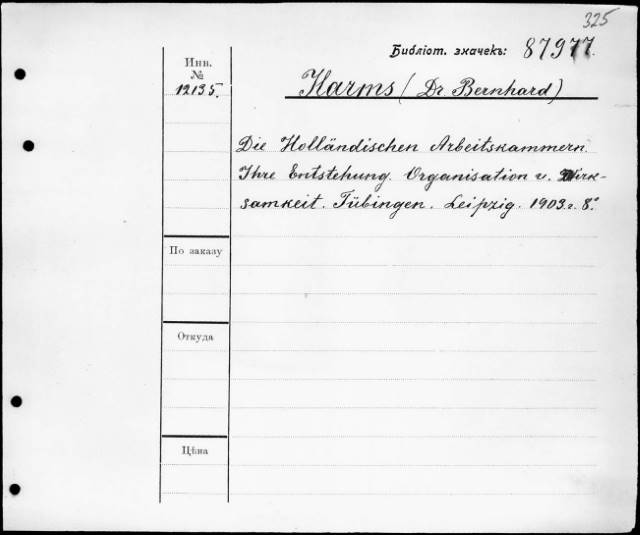 325
Библіот. значекъ: 87977.
Инв.
№
12135.
Harms (Dr. Bernhard)
Die Holländischen Arbeitskammern.
Ihre Entstehung. Organisation u. Wirk-
samkeit. Tübingen. Leipzig. 1903.г. 8.°
По заказу
Откуда
Цѣна